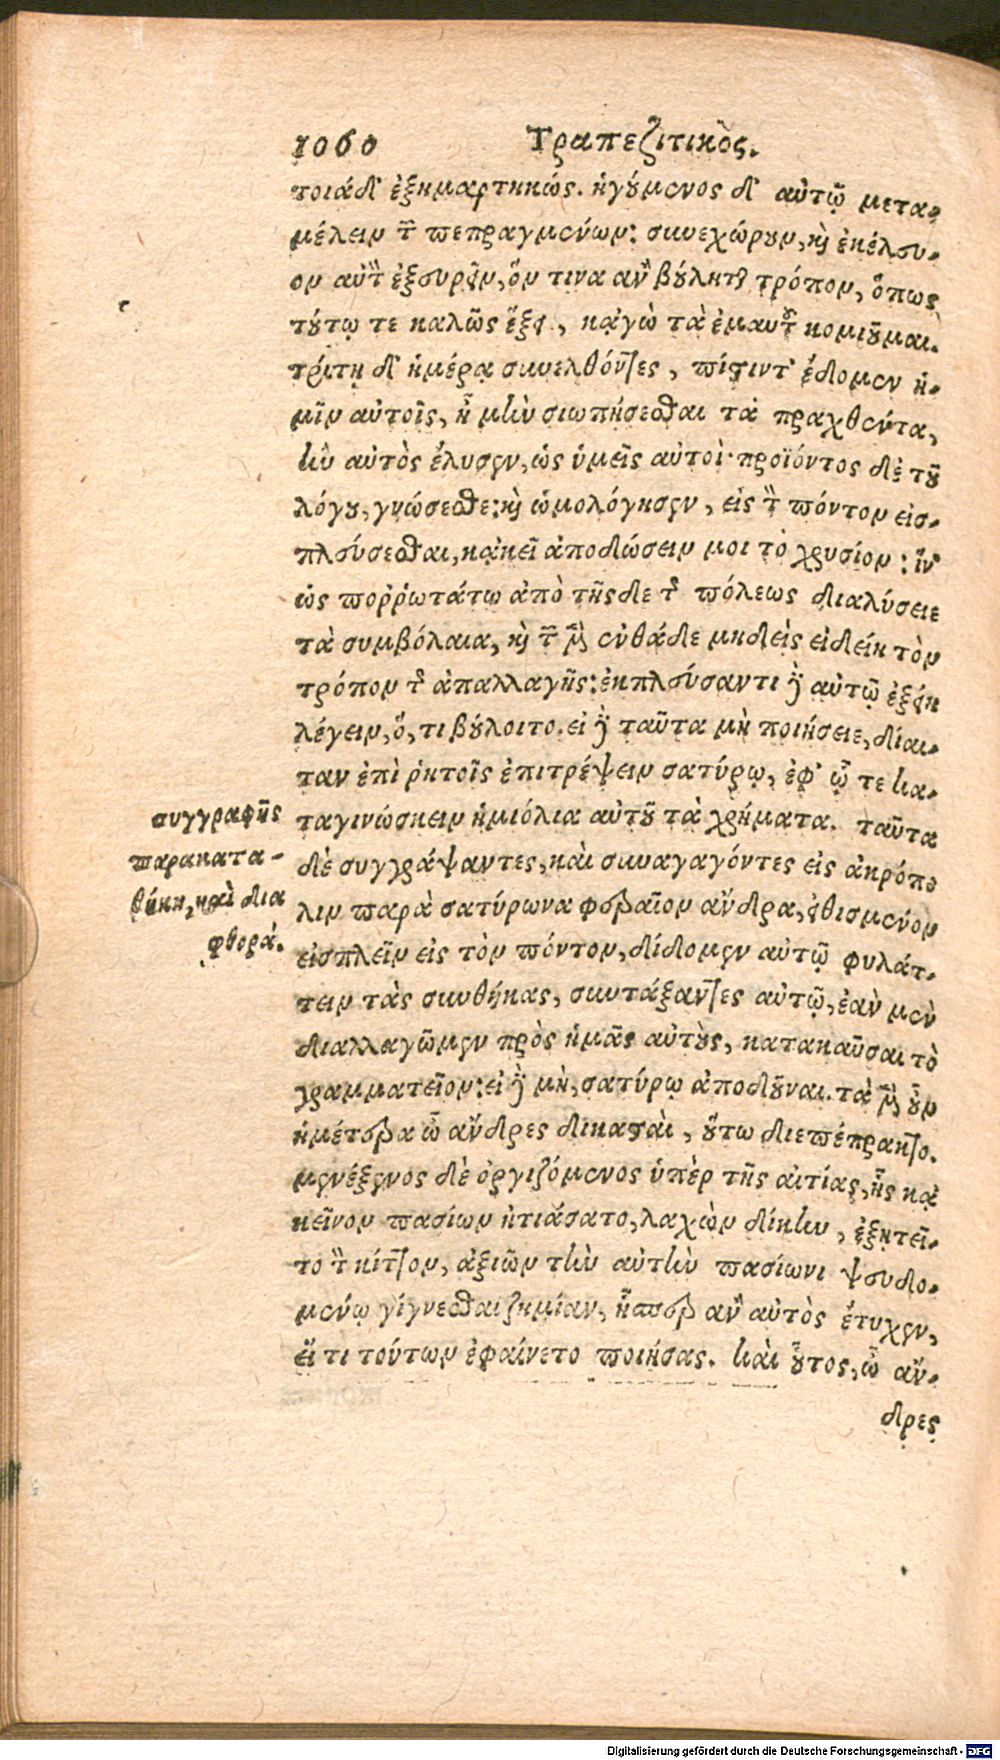 1060 Τραπεζιτικὸς.
τοιάδ' ἐξημαρτηκώς. ἡγούμενος δ' αὐτῷ μετα-
μέλειν τῶν πεπραγμένων: συνεχώρουν, καὶ ἐκέλευ-
ον αὐτὸν ἐξευρεῖν, ὅν τινα ἂν βούληται τρόπον, ὅπως
τούτῳ τε καλῶς ἕξει, κᾀγὼ τὰ ἐμαυτοῦ κομιοῦμαι.
τρίτῃ δ' ἡμέρᾳ συνελθόντες, πίστιν τ' ἔδομεν ἡ-
μῖν αὐτοῖς, ἦ μὴν σιωπήσεσθαι τὰ πραχθέντα,
ἣν αὐτὸς ἔλυσεν, ὡς ὑμεῖς αὐτοὶ προϊόντος δὲ τοῦ
λόγου, γνώσεσθε: καὶ ὡμολόγησεν, εἰς τὸν πόντον εἰσ-
πλεύσεσθαι, κᾀκεῖ ἀποδώσειν μοι τὸ χρυσίον: ἵν'
ὡς πορρωτάτω ἀπὸ τῆσδε τῆς πόλεως διαλύσειε
τὰ συμβόλαια, καὶ τῶν μὲν ἐνθάδε μηδεὶς εἰδείη τὸν
τρόπον τῆς ἀπαλλαγῆς: ἐκπλεύσαντι δὲ αὐτῷ ἐξείη
λέγειν, ὅ, τι βούλοιτο. εἰ δὲ ταῦτα μὴ ποιήσειε, δίαι-
ταν ἐπὶ ῥητοῖς ἐπιτρέψειν σατύρῳ, ἐφ' ᾧ τε κα-
ταγινώσκειν ἡμιόλια αὐτοῦ τὰ χρήματα. ταῦτα
δὲ συγγράψαντες, καὶ συναγαγόντες εἰς ἀκρόπο
λιν παρὰ σατύρωνα φεραῖον ἄνδρα, εἰθισμένον
εἰσπλεῖν εἰς τὸν πόντον, δίδομεν αὐτῷ φυλάτ-
τειν τὰς συνθήκας, συντάξαντες αὐτῷ, ἐὰν μὲν
διαλλαγῶμεν πρὸς ἡμᾶς αὐτοὺς, κατακαῦσαι τὸ
γραμματεῖον: εἰ δὲ μὴ, σατύρῳ ἀποδοῦναι. τὰ μὲν οὖν
ἡμέτερα ὦ ἄνδρες δικασταὶ, οὕτω διεπέπρακτο.
μενέξενος δὲ ὀργιζόμενος ὑπὲρ τῆς αἰτίας, ἧς κᾀ
κεῖνον πασίων ᾐτιάσατο, λαχὼν δίκην, ἐξῃτεῖ-
το τὸν κίττον, ἀξιῶν τὴν αὐτὴν πασίωνι ψευδο-
μένῳ γίγνεσθαι ζημίαν, ἧσπερ ἂν αὐτὸς ἔτυχεν,
εἴ τι τούτων ἐφαίνετο ποιήσας. καὶ οὗτος, ὦ ἄν-
δρες
συγγραφῆς
παρακατα-
θήκη, καὶ δια
φθορά.
Digitalisierung gefördert durch die Deutsche Forschungsgemeinschaft - DFG